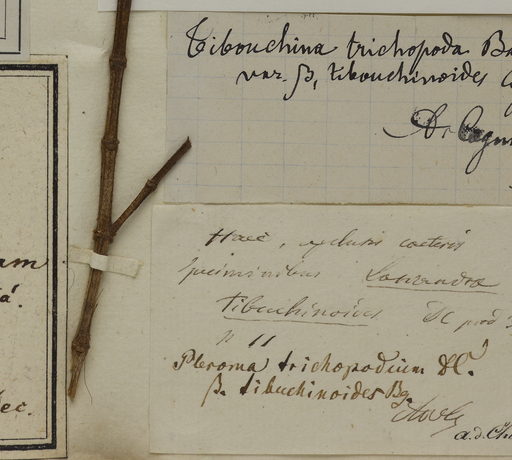 Tibouchina trichopoda Ba
var. β, tibouchinoides C
A. Cogn
Haec, exclusis caeteris
speciminibus Lasiandra
tibuchinoides DC prod
n 11
Pleroma trichopodium DC.
β. tibuchinoides Bg.
a.d.Ch
am
tá.
ec.